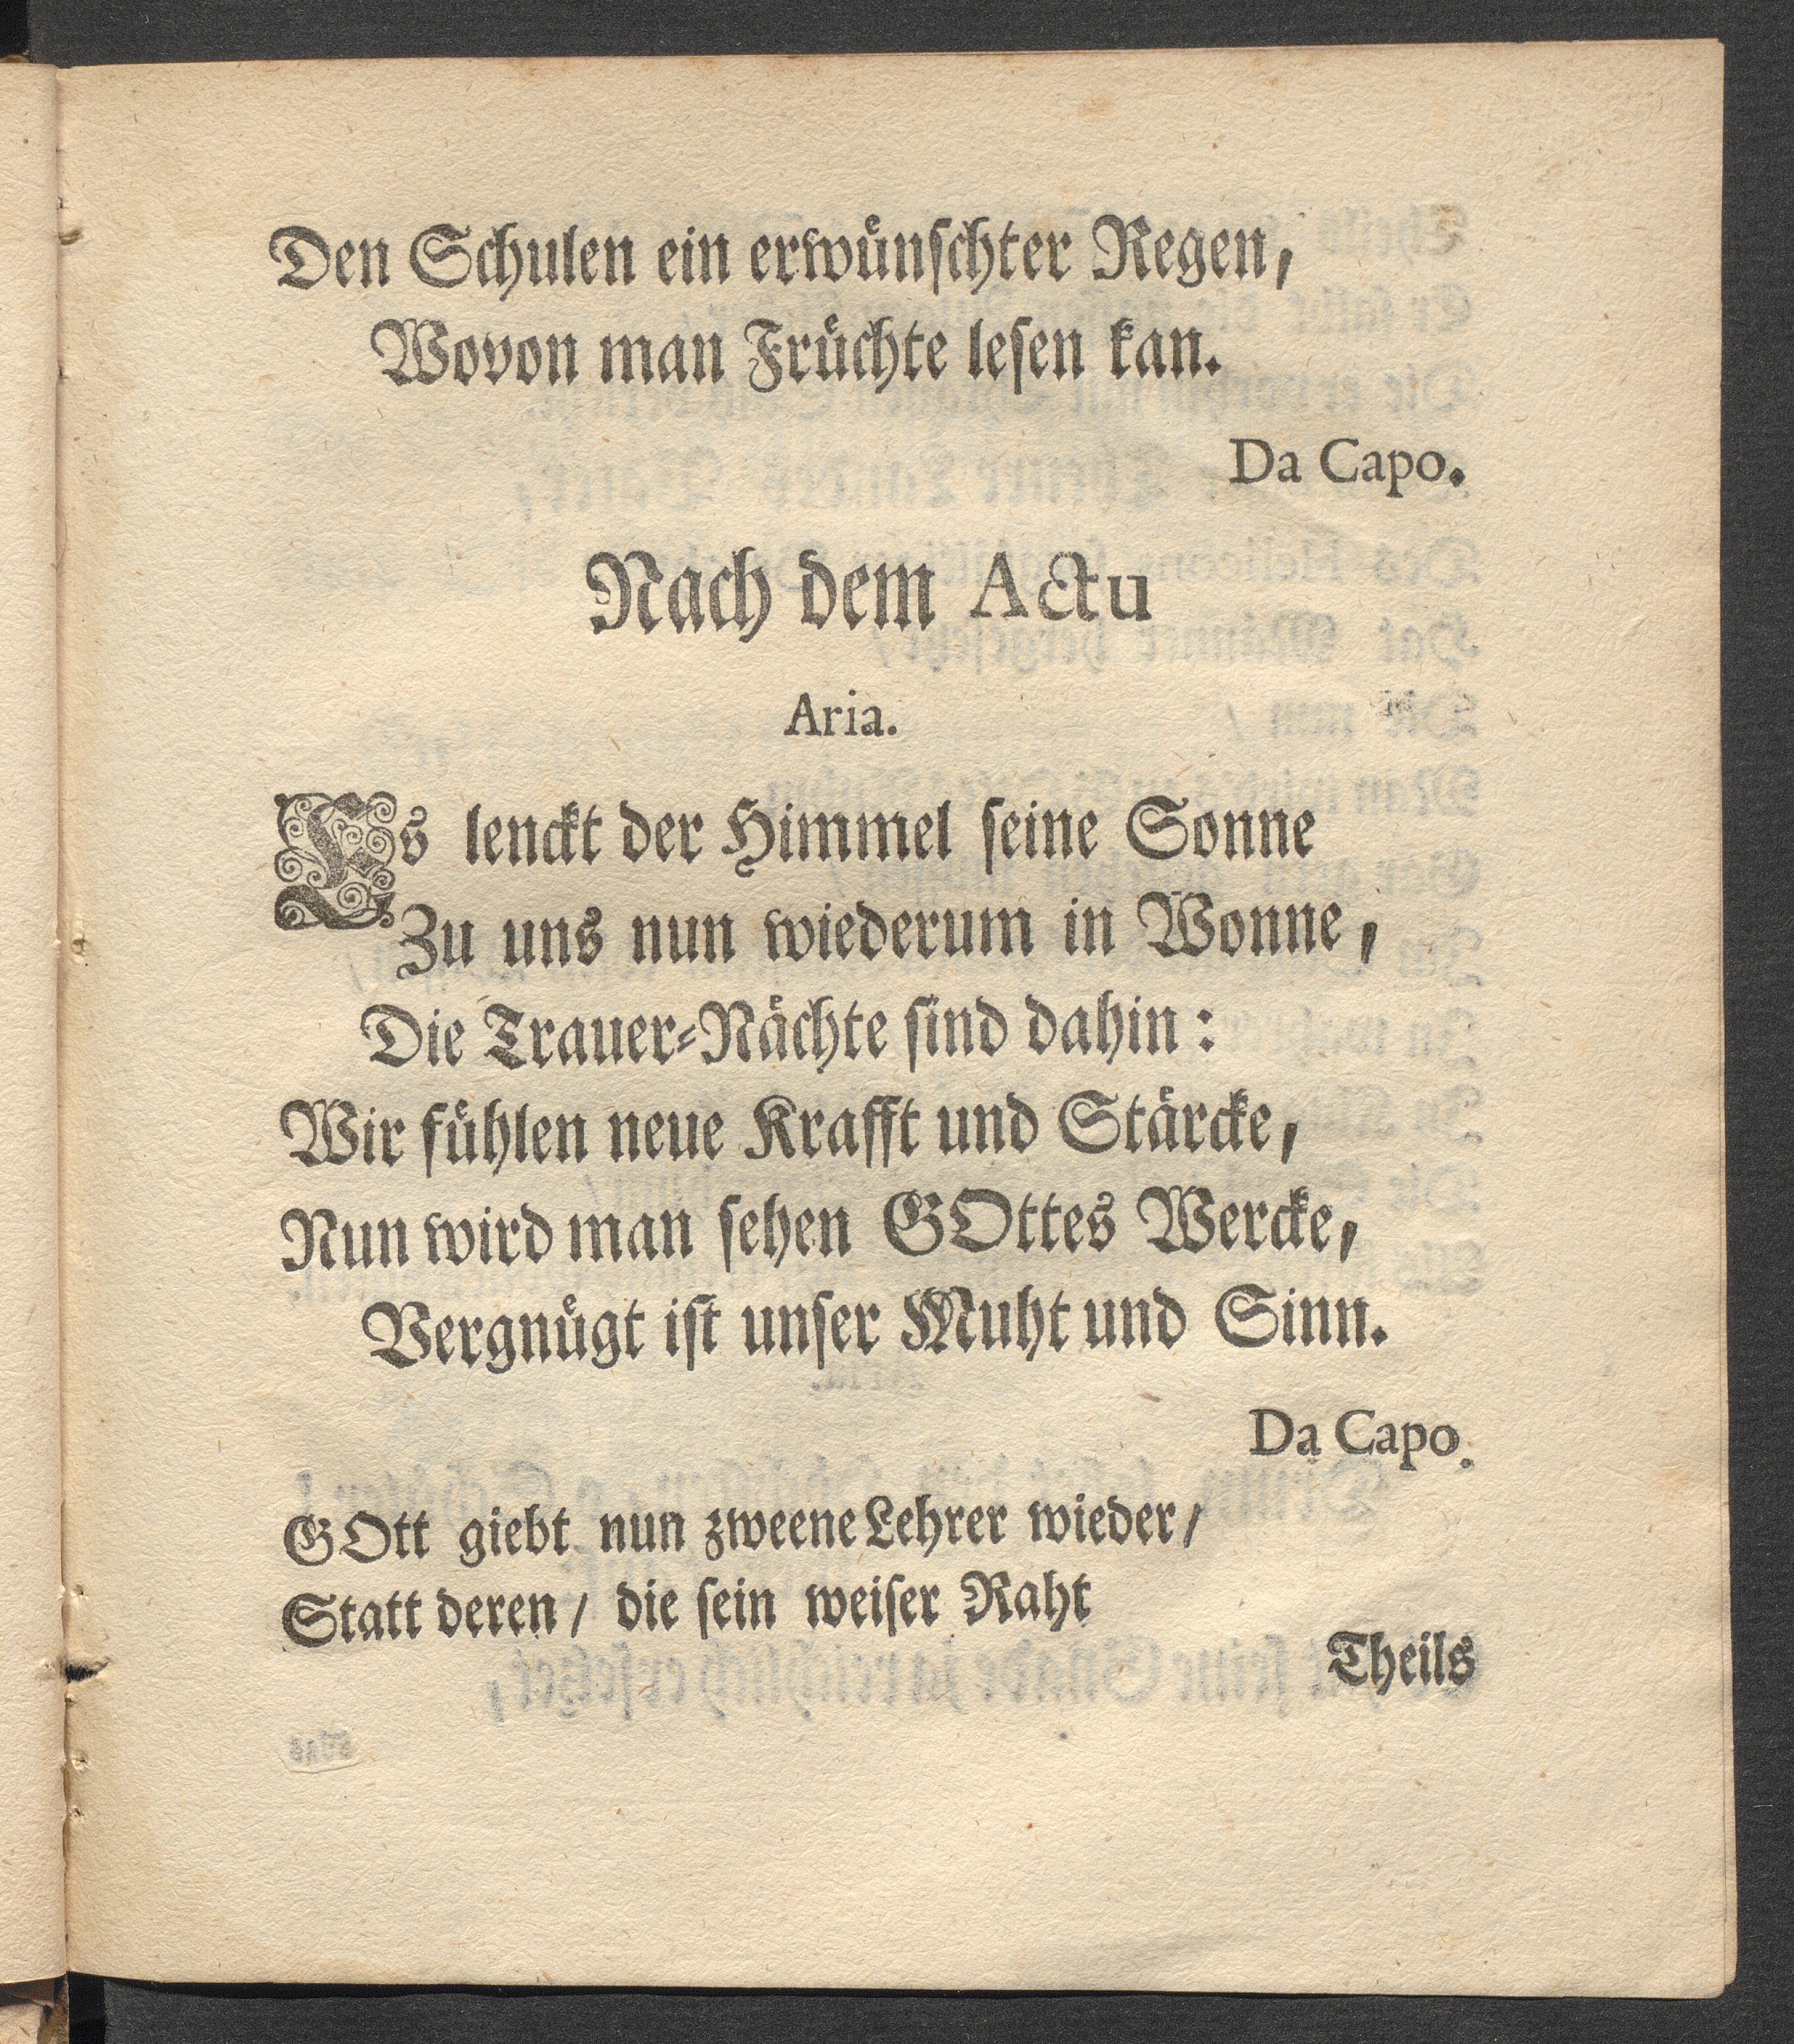 Den Schulen ein erwünschter Regen,
Wovon man Früchte lesen kan.
Da Capo.
Nach dem Actu
Aria.
Es lenckt der Himmel seine Sonne
Zu uns nun wiederum in Wonne,
Die Trauer-Nächte sind dahin:
Wir fühlen neue Krafft und Stärcke,
Nun wird man sehen GOttes Wercke,
Vergnügt ist unser Muht und Sinn.
Da Capo.
GOtt giebt nun zweene Lehrer wieder/
Statt deren/ die sein weiser Raht
Theils